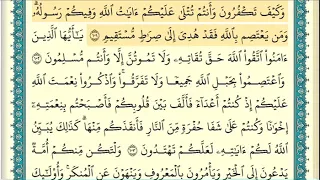 وَكَيْفَ تَكْفُرُونَ وَأَنتُمْ تُتْلَىٰ عَلَيْكُمْ ءَايَٰتُ ٱللَّهِ وَفِيكُمْ رَسُولُهُۥ ۗ
وَمَن يَعْتَصِم بِٱللَّهِ فَقَدْ هُدِىَ إِلَىٰ صِرَٰطٍ مُّسْتَقِيمٍ ١٠١ يَٰٓأَيُّهَا ٱلَّذِينَ
ءَامَنُوا۟ ٱتَّقُوا۟ ٱللَّهَ حَقَّ تُقَاتِهِۦ وَلَا تَمُوتُنَّ إِلَّا وَأَنتُم مُّسْلِمُونَ ١٠٢
وَٱعْتَصِمُوا۟ بِحَبْلِ ٱللَّهِ جَمِيعًا وَلَا تَفَرَّقُوا۟ ۚ وَٱذْكُرُوا۟ نِعْمَتَ ٱللَّهِ
عَلَيْكُمْ إِذْ كُنتُمْ أَعْدَآءً فَأَلَّفَ بَيْنَ قُلُوبِكُمْ فَأَصْبَحْتُم بِنِعْمَتِهِۦٓ
إِخْوَٰنًا وَكُنتُمْ عَلَىٰ شَفَا حُفْرَةٍ مِّنَ ٱلنَّارِ فَأَنقَذَكُم مِّنْهَا ۗ كَذَٰلِكَ يُبَيِّنُ
ٱللَّهُ لَكُمْ ءَايَٰتِهِۦ لَعَلَّكُمْ تَهْتَدُونَ ١٠٣ وَلْتَكُن مِّنكُمْ أُمَّةٌ
يَدْعُونَ إِلَى ٱلْخَيْرِ وَيَأْمُرُونَ بِٱلْمَعْرُوفِ وَيَنْهَوْنَ عَنِ ٱلْمُنكَرِ ۚ وَأُو۟لَٰٓئِكَ